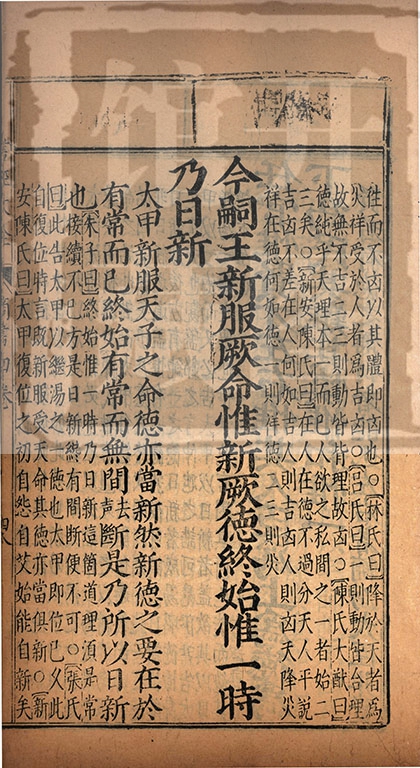 徃而不凶以其體即凶也○林氏曰降於天者爲
災祥受於人者爲吉凶○呂氏曰一則動皆合理
故無不吉二三則動皆背理故凶○陳氏大猷曰
德純乎天理本一而已人欲之私間之一者始二
三矣○新安陳氏曰在人在德不過分天人平說
吉凶不差在人何如吉人則吉凶人則凶天降災
祥在德何如德一則祥德二三則災
今嗣王新服厥命惟新厥德終始惟一時
乃日新
太甲新服天子之命德亦當新然新德之要在於
有常而已終始有常而無間去聲斷是乃所以日新
也朱子曰終始惟一時乃日新這箇道理湏是常
接續不已方是日新纔有間斷便不可○張氏
曰此告太甲以繼湯之一德也太甲即位已久此
自復位時言旣新服受天命其德亦當俱新○新
安陳氏曰太甲復位之初自怨自艾始能自新矣